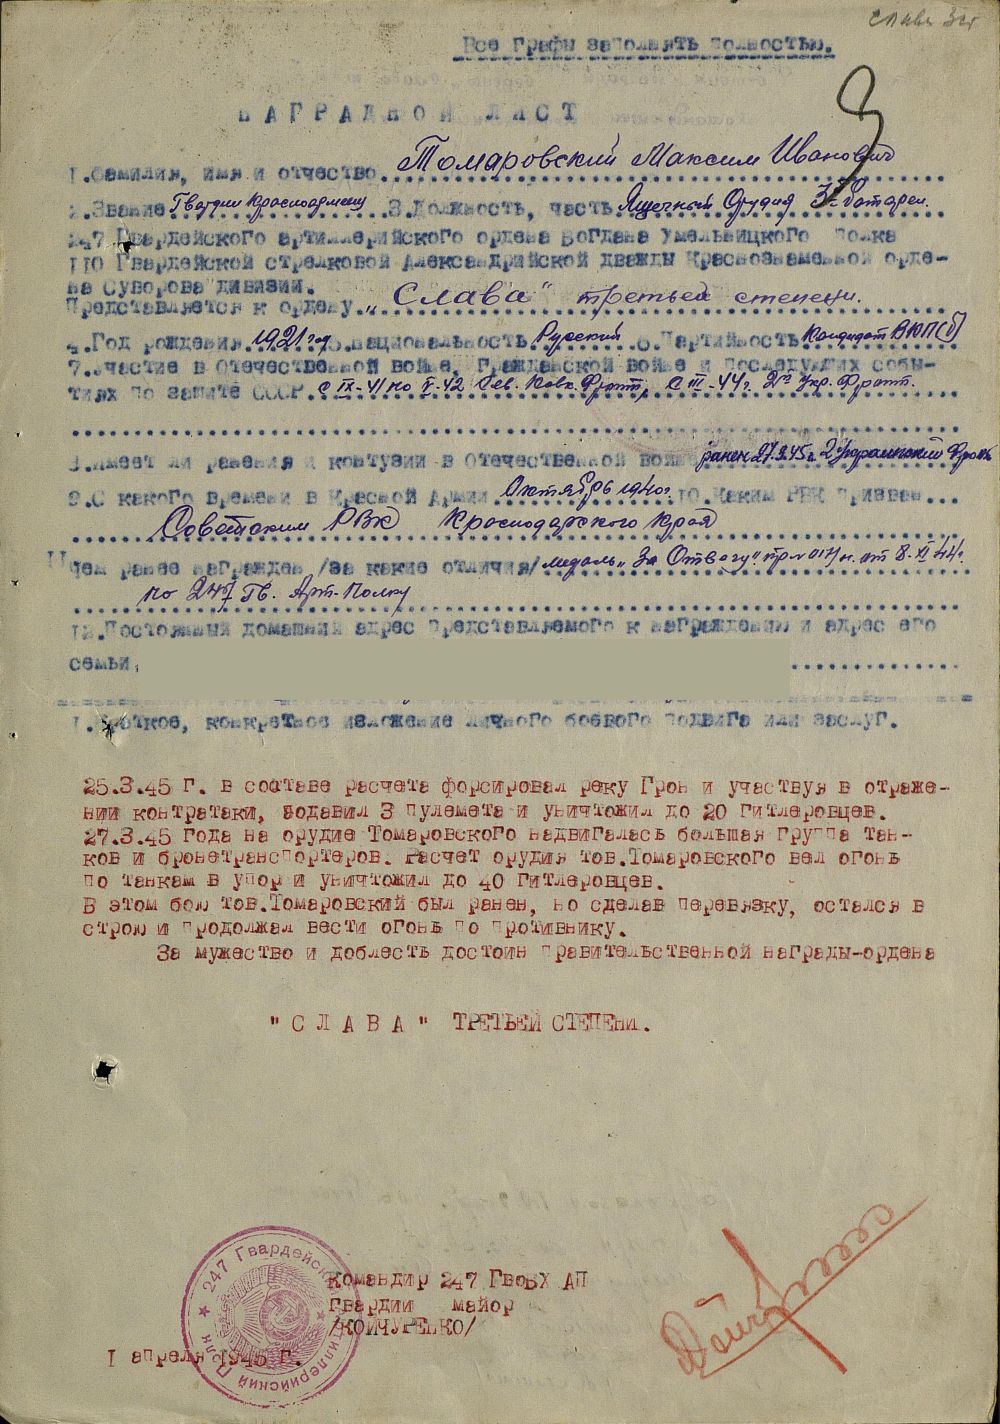 слава 3 ст
Все графы заполнять полностью.
НАГРАДНОЙ ЛИСТ
1.Фамилия, имя и отчество Томаровский Максим Иванович
2.Звание Гвардии Красноармеец 3.Должность, часть Ящечный Орудия 3й батареи.
247 Гвардейского артиллерийского ордена Богдана Хмельницкого полка
110 Гвардейской стрелковой Александрийской дважды Краснознаменной орде-
на Суворова дивизии.
Представляется к ордену „Слава" третьей степени.
4.Год рождения 1921 год 5.Национальность Русский 6.Партийность Кандидат ВКП(б)
7.Участие в Отечественной войне, Гражданской войне и последующих собы-
тиях по защите СССР. с IX-41 по V-42 Сев. Кавк. Фронт, с III-44г. 2й Укр. Фронт.
8.Имеет ли ранения и контузии в Отечественной войне ранен 27.3.45г. 2 Украинский Фронт
9.С какого времени в Красной Армии Октябрь 1940г. 10.Каким РВК призван...
Советским РВК Краснодарского Края
11 Чем ранее награжден /за какие отличия/ медаль „За Отвагу" пр. № 017/н. от 8-XI 44г.
по 247 Гв. Арт-Полку
12.Постоянный домашний адрес представляемого к награждению и адрес его
семьи,
1.Краткое, конкретное изложение личного боевого подвига или заслуг.
25.3.45 г. в составе расчета форсировал реку Грон и участвуя в отраже-
нии контратаки, подавил 3 пулемета и уничтожил до 20 гитлеровцев.
27.3.45 года на орудие Томаровского надвигалась большая группа тан-
ков и бронетранспортеров. Расчет орудия тов.Томаровского вел огонь
по танкам в упор и уничтожил до 40 гитлеровцев.
В этом бою тов.Томаровский был ранен, но сделав перевязку, остался в
строю и продолжал вести огонь по противнику.
За мужество и доблесть достоин правительственной награды-ордена
"СЛАВА" ТРЕТЬЕЙ СТЕПЕНИ.
Командир 247 ГвОБХ АП
Гвардии майор
/КОЙЧУРЕНКО/
1 апреля 1945 г.
247 Гвардейский Артиллерийский Полк